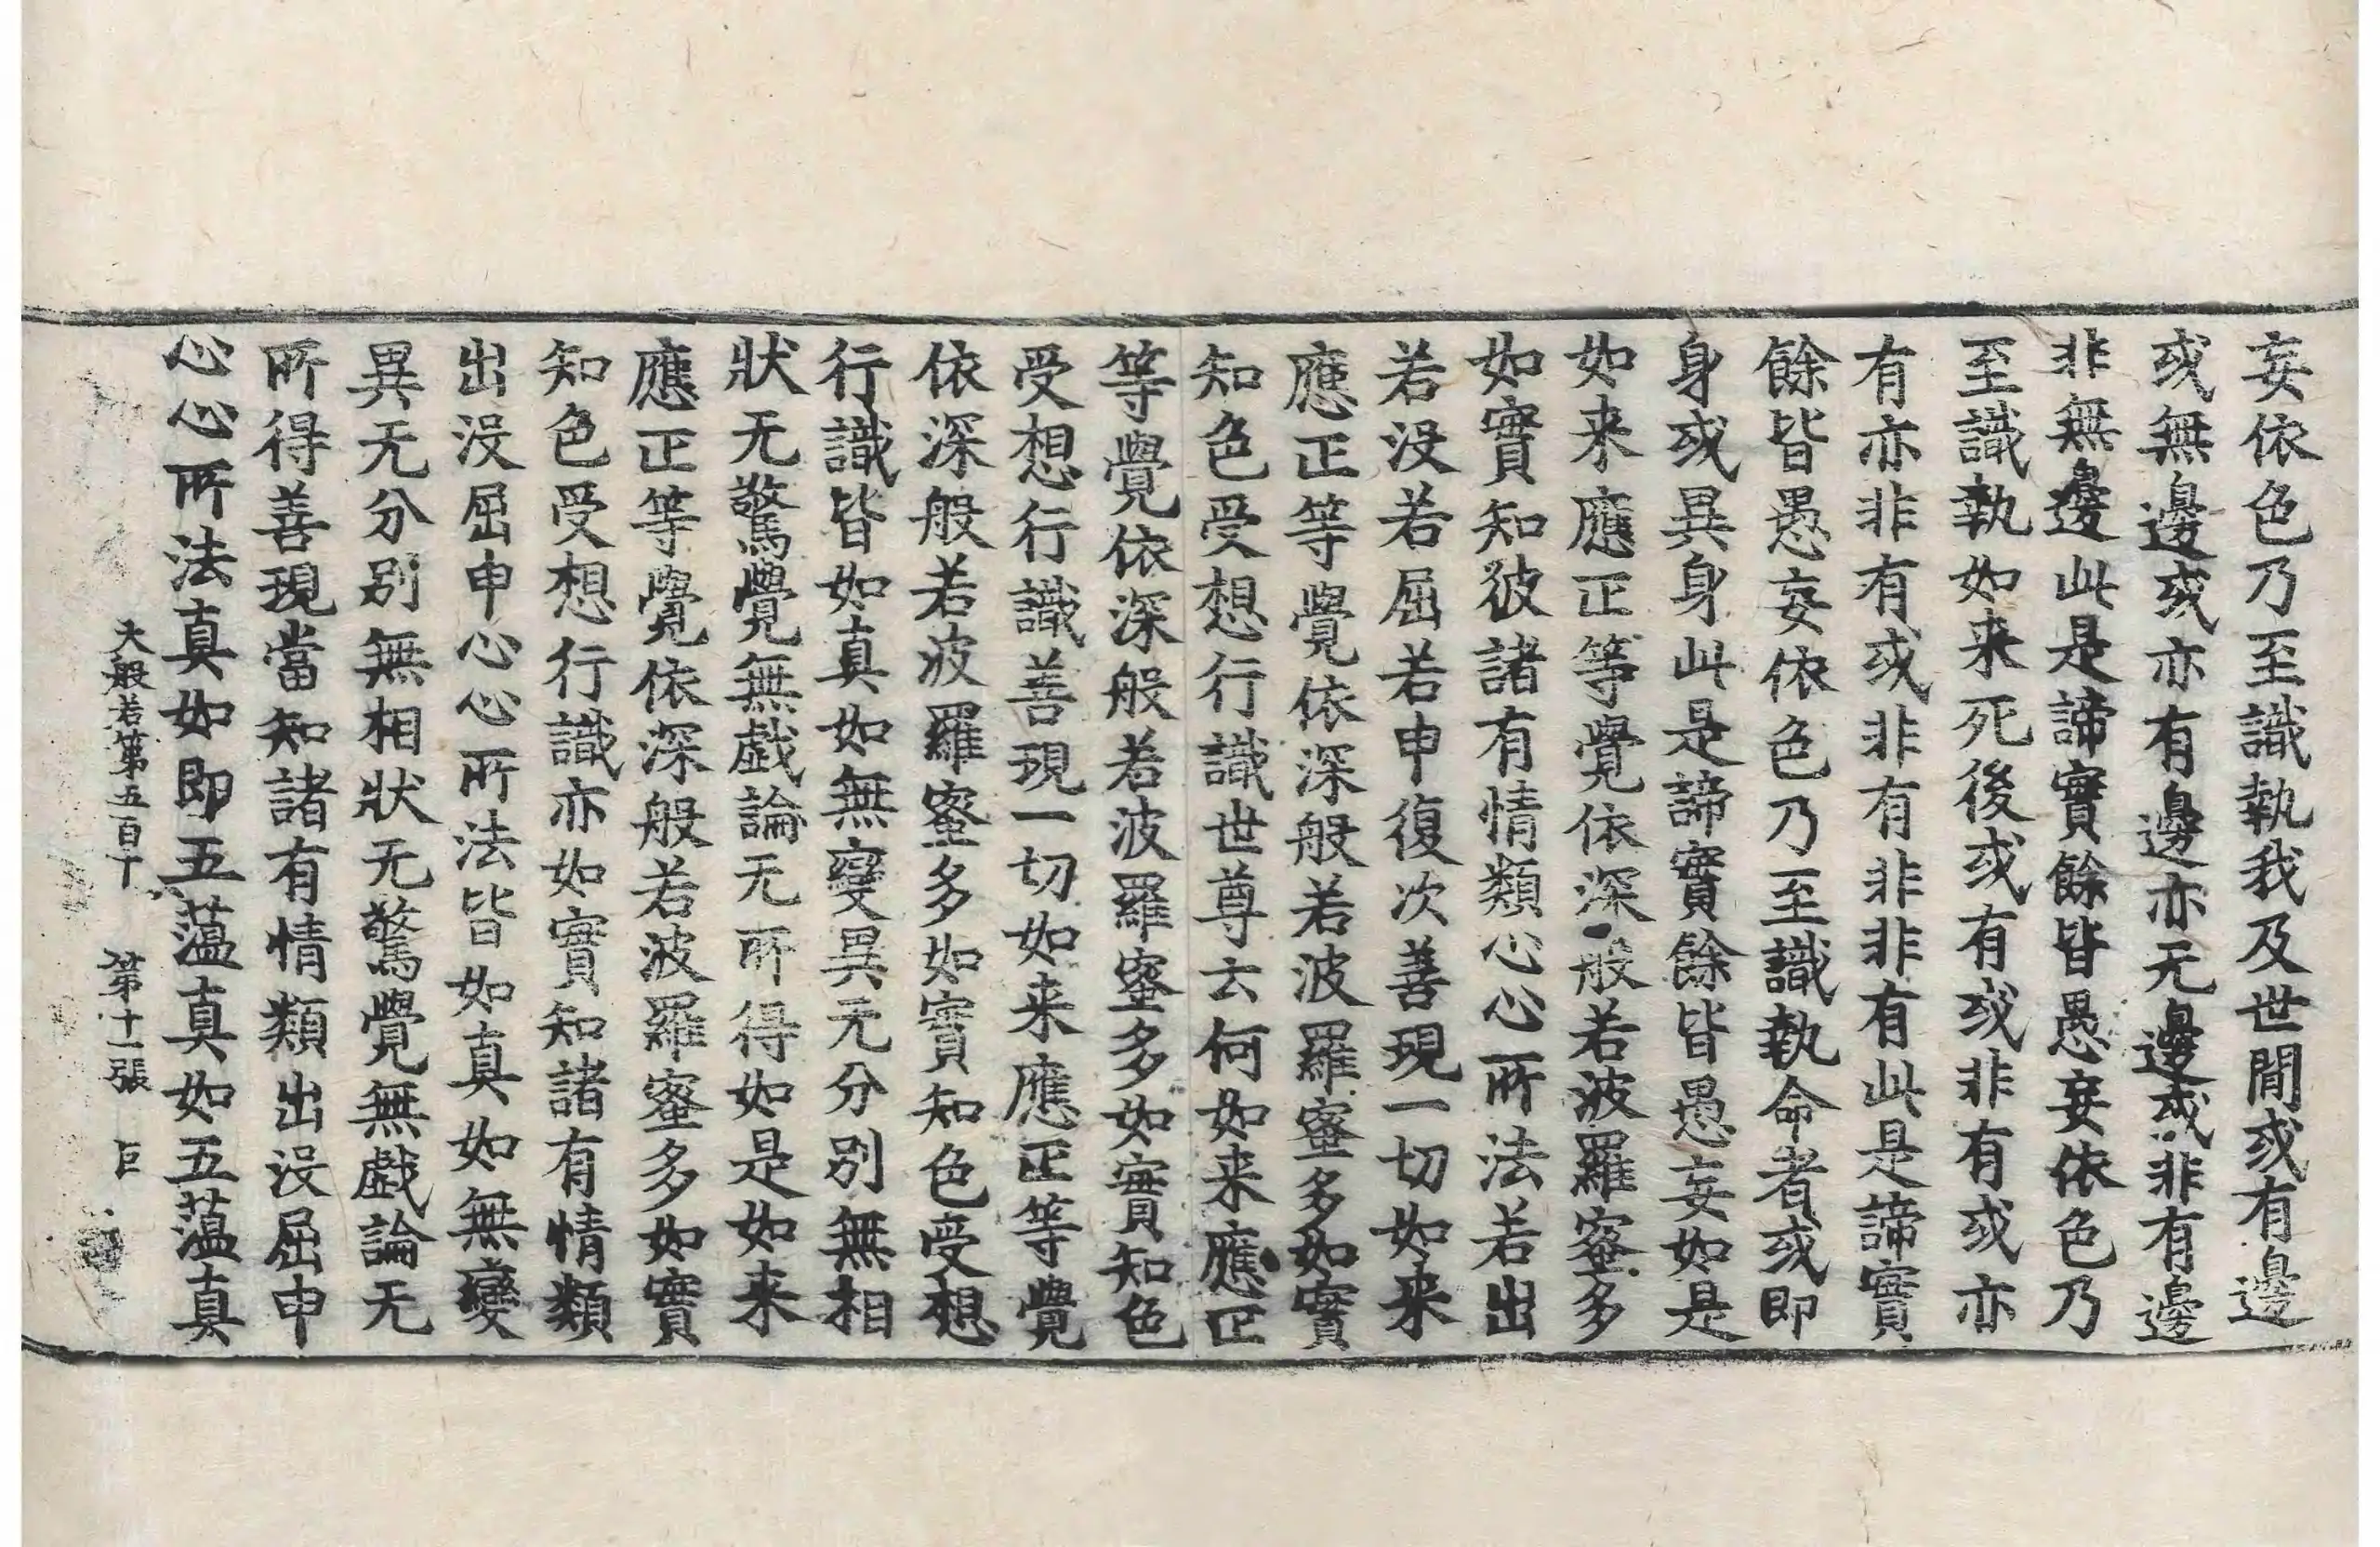 妄依色乃至識執我及世間或有邊
或無邊或亦有邊亦无邊或非有邊
非無邊此是諦實餘皆愚妄依色乃
至識執如来死後或有或非有或亦
有亦非有或非有非非有此是諦實
餘皆愚妄依色乃至識執命者或即
身或異身此是諦實餘皆愚妄如是
如来應正等覺依深般若波羅蜜多
如實知彼諸有情類心心所法若出
若没若屈若申復次善現一切如来
應正等覺依深般若波羅蜜多如實
知色受想行識世尊云何如来應正
等覺依深般若波羅蜜多如實知色
受想行識善現一切如来應正等覺
依深般若波羅蜜多如實知色受想
行識皆如真如無變異无分別無相
狀无驚覺無戲論无所得如是如来
應正等覺依深般若波羅蜜多如實
知色受想行識亦如實知諸有情類
出没屈申心心所法皆如真如無變
異无分別無相狀无驚覺無戲論无
所得善現當知諸有情類出没屈申
心心所法真如即五蘊真如五蘊真
大般若第五百十 第十一張 巨